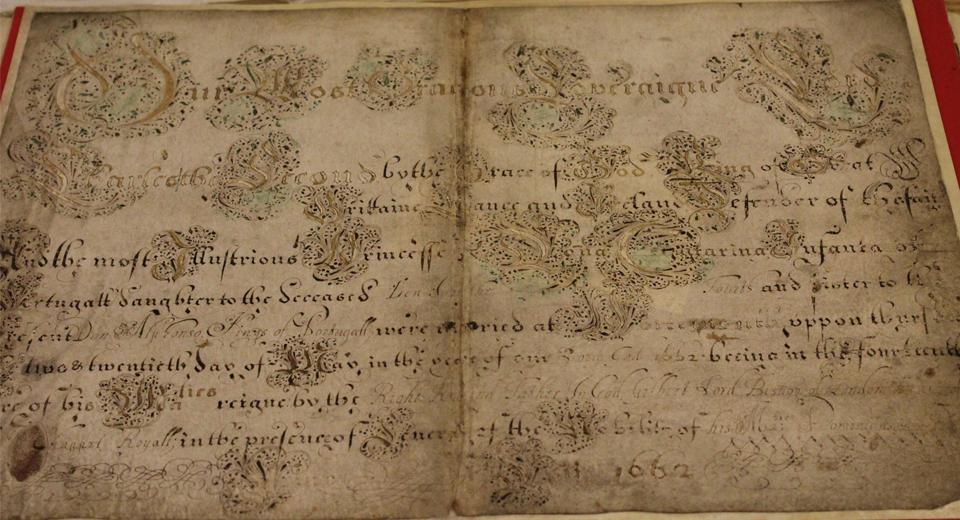 Our Most Gracious Soveraigne Lord
Charles the Second by the Grace of God King of Great
Brittaine France and Ireland Defender of the Faith
And the most Illustrious Princesse Dona Catharina Infanta of
Portugall Daughter to the Deceased Don and Sister to the
present Don Alphonso Kings of Portugall were married at Portsmouth uppon thurs
two & twentieth day of May in the yeare of our Lord God 1662 beeing in the fourteenth
yeare of his Ma ties reigne by the Right Reverend Father in God Gilbert Lord Bishop of London
Chappell Royall in the presence of severall of the Nobility of his Ma ties Dominions
1662